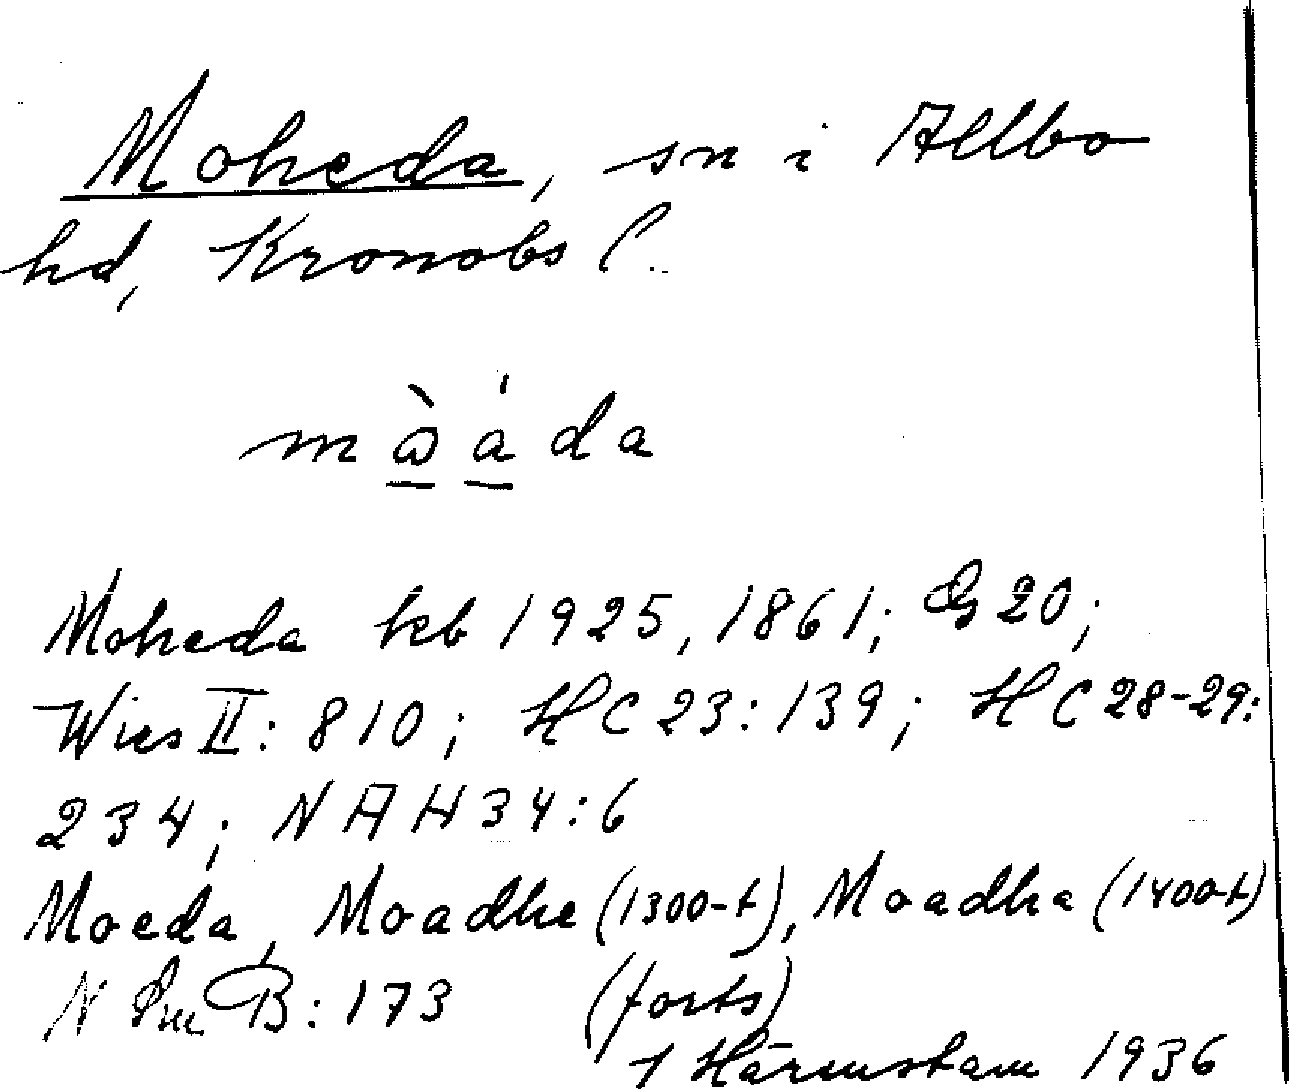 Moheda, sn i Allbo
hd, Kronobs l.
Moheda kb 1925, 1861; G 20;
Wies II: 810; HC 23: 139; HC 28-29:
234; NAH 34: 6
Moeda, Moadhe (1300-t), Moadha (1400-t)
N Sm B: 173 (forts)
Härenstam 1936